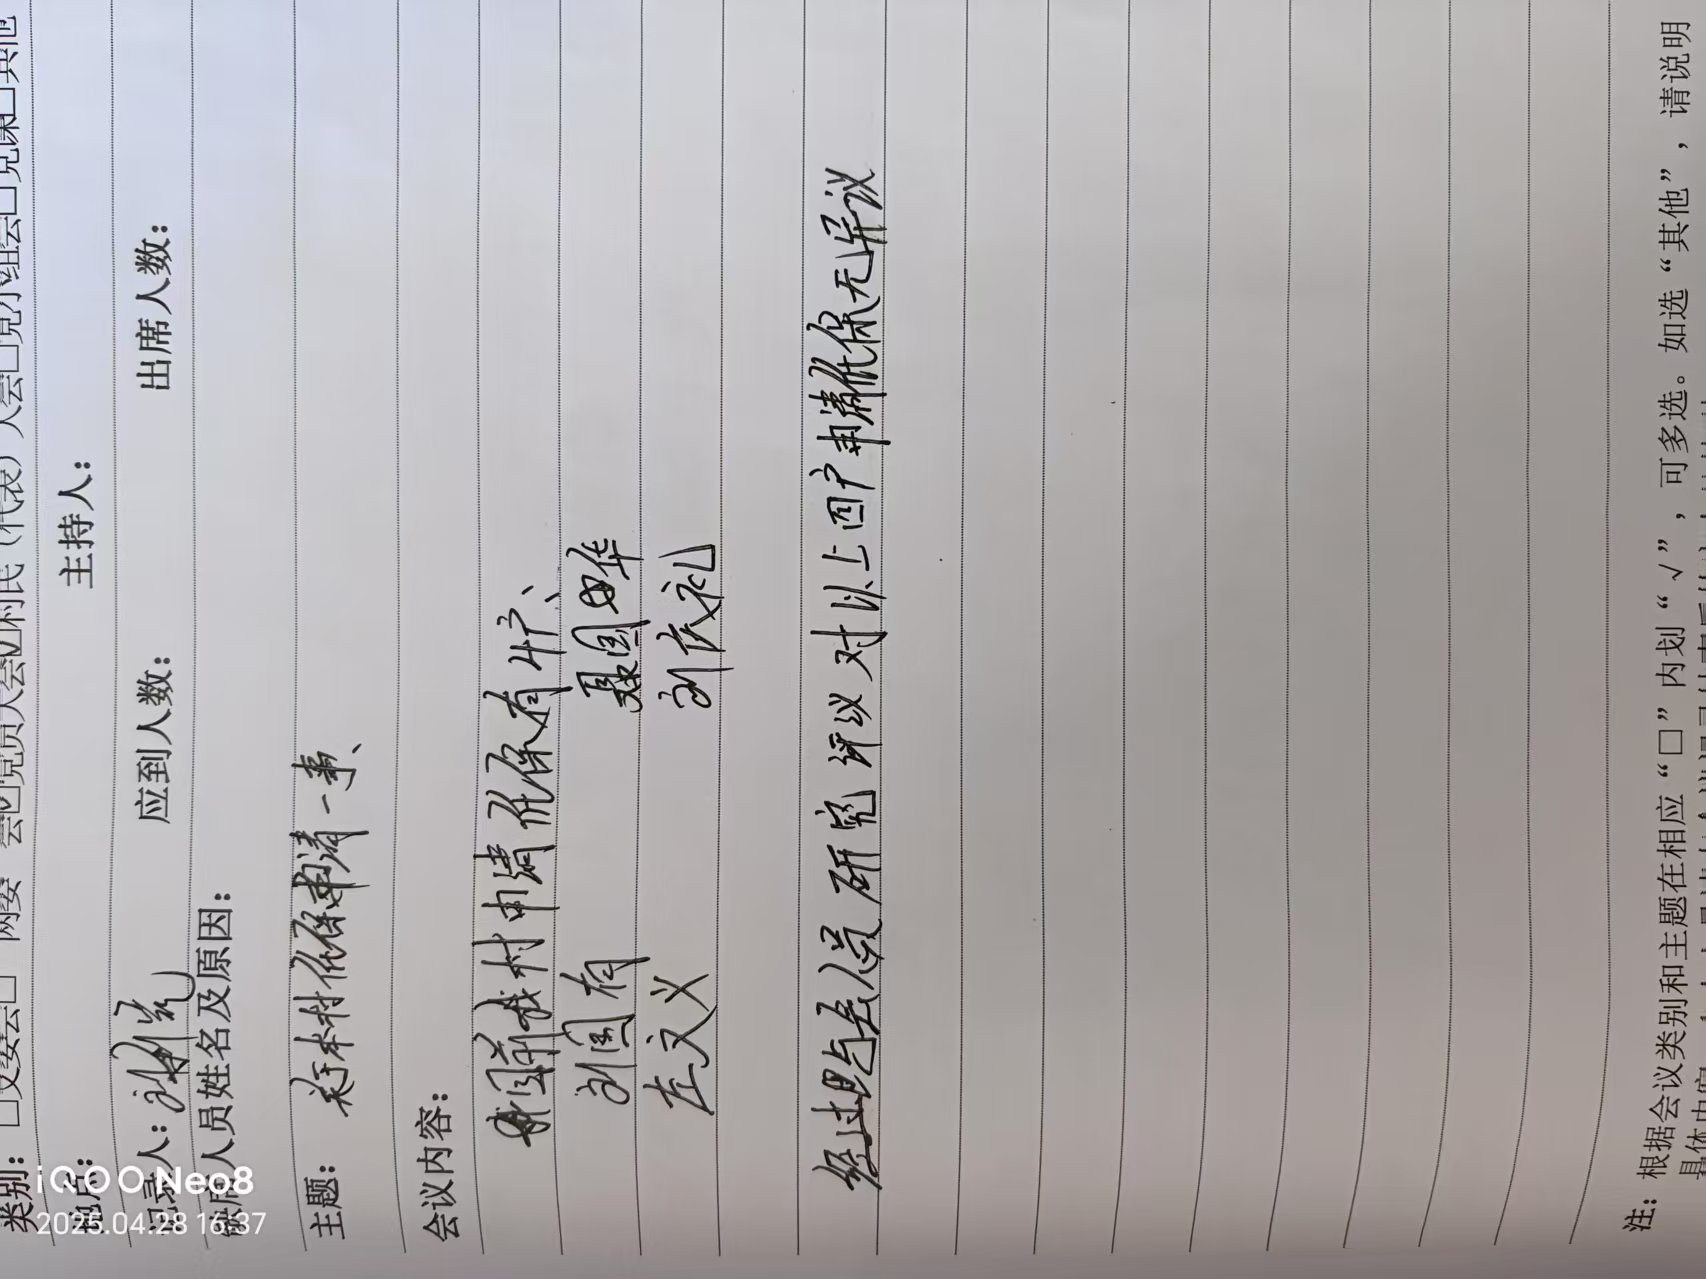 类别：□支委会□ 两委 会☑党员大会☑村民（代表）大会□党小组会□党课□其他
地点： 主持人：
记录人： 应到人数： 出席人数：
缺席人员姓名及原因：
主题： 本村低保申请一事、
会议内容：
目前我村申请低保有4户、
刘国有 聂国华
左文义 刘庆礼
经过与会人员研究评议对以上四户申请低保无异议
注：根据会议类别和主题在相应“□”内划“√”，可多选。如选“其他”，请说明
具体内容
iQOO Neo8
2025.04.28 16:37